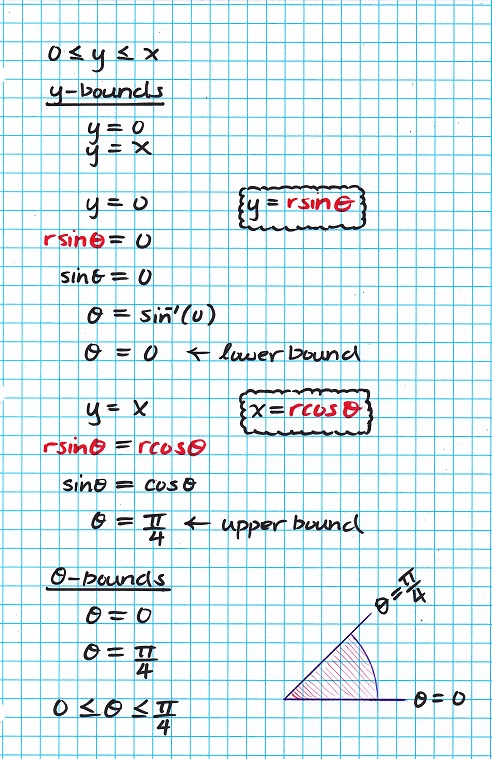 0 ≤ y ≤ x
y-bounds
y = 0
y = x
y = 0
y = rsinθ
rsinθ = 0
sinθ = 0
θ = sin⁻¹(0)
θ = 0 ← lower bound
y = x
x = rcosθ
rsinθ = rcosθ
sinθ = cosθ
θ = π/4 ← upper bound
θ-bounds
θ = 0
θ = π/4
0 ≤ θ ≤ π/4
θ = π/4
θ = 0